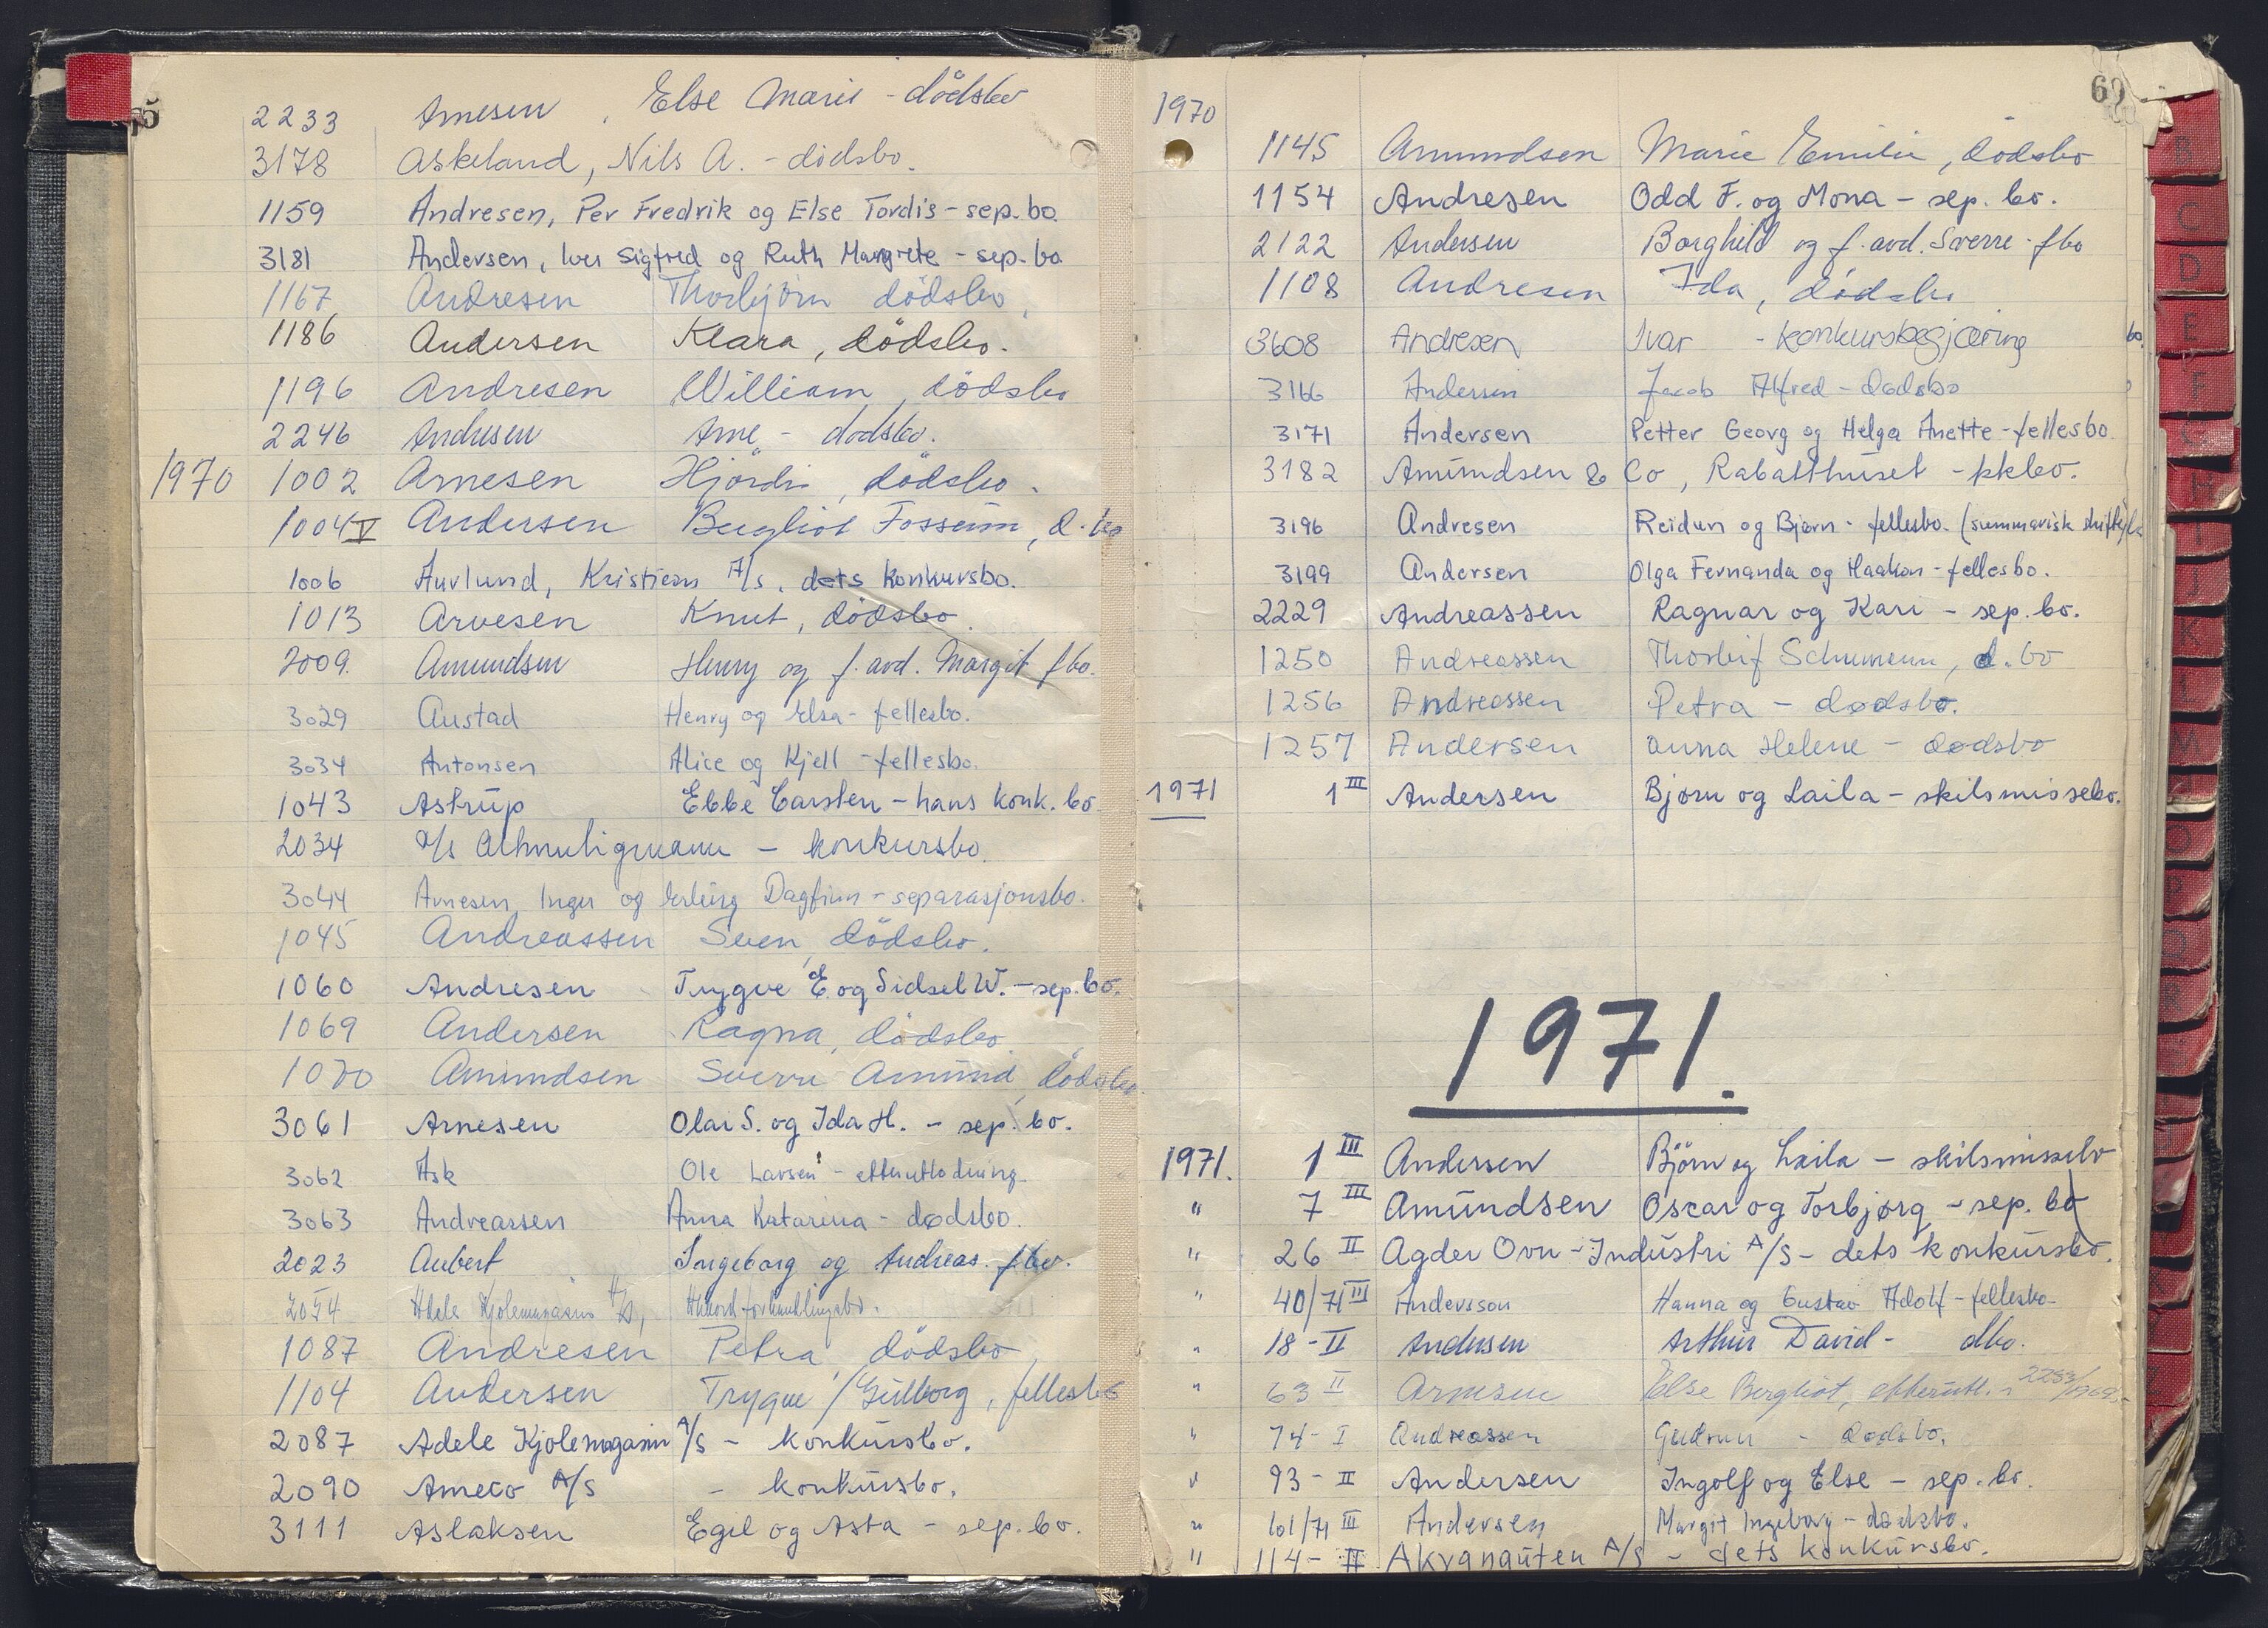 65
2233 Arnesen, Else Marie - dödsbo
3178 Askeland, Nils A. - dödsbo.
1159 Andresen, Per Fredrik og Else Tordis - sep. bo.
3181 Andersen, Iver Sigfred og Ruth Margrete - sep. bo
1167 Andresen Thorbjörn dödsbo,
1186 Andersen Klara, dödsbo.
1196 Andresen William, dödsbo
2246 Andresen Arne - dødsbo.
1970 1002 Arnesen Hjördis, dödsbo.
1004 V Andersen Bergliot Fossum, d. bo
1006 Aurlund, Kristian A/s, dets konkursbo.
1013 Arvesen Knut, dödsbo.
2009. Amundsen Henry og f. avd. Margit fbo.
3029 Austad Henry og Elsa - fellesbo.
3034 Antonsen Alice og Kjell - fellesbo.
1043 Astrup Ebbe Carsten - hans konk. bo.
2034 A/s - konkursbo.
3044 Arnesen, Inger og Erling Dagfinn - separasjonsbo.
1045 Andreassen Sven, dödsbo.
1060 Andresen Trygve E. og Sidsel W. - sep. bo.
1069 Andersen Ragna, dödsbo
1070 Amundsen Sverre Amund, dödsbo
3061 Arnesen Olai S. og Ida H. - sep. bo.
3062 Ask Ole Larsen - etterutlodning
3063 Andreassen Anna Katarina - dødsbo.
2023 Aubert Ingeborg og Andreas. fbo.
2054 Adele Kjolemagasin A/S, Akkordforhandlingsbo.
1087 Andresen Petra, dödsbo
1104 Andersen Trygve / Gullborg, fellesbo
2087 Adele Kjolemagasin A/S - konkursbo.
2090 Ameco A/S - konkursbo.
3111 Aslaksen Egil og Asta - sep. bo.
69
1970
1145 Amundsen Marie Emilie, dödsbo
1154 Andresen Odd F. og Mona - sep. bo.
2122 Andersen Borghild og f. avd. Sverre - fbo
1108 Andresen Ida, dödsbo
3608 Andresen Ivar - konkursbegjæring bo.
3166 Andersen Jacob Alfred - dødsbo
3171 Andersen Petter Georg og Helga Anette - fellesbo.
3182 Amundsen & Co, Rabatthuset - kkbo.
3196 Andresen Reidun og Bjørn - fellesbo. (summarisk
3199 Andersen Olga Fernanda og Haakon - fellesbo.
2229 Andreassen Ragnar og Kari - sep. bo.
1250 Andreassen Thorleif Schumann, d. bo
1256 Andreassen Petra - dødsbo.
1257 Andersen Anna Helene - dødsbo
1971 1 III Andersen Bjørn og Laila - skilsmissebo.
1971.
1971. 1 III Andersen Björn og Laila - skilsmissebo
" 7 III Amundsen Oscar og Torbjørg - sep. bo
" 26 II Agder Ovn - Industri A/S - dets konkursbo.
" 40/71 III Andersson Hanna og Gustav Adolf - fellesbo -
" 18 - II Andersen Arthur David - dbo.
" 63 II Arnesen Else Bergliot, etterutl. 2253/1969 -
" 74 - I Andreassen Gudrun - dødsbo.
" 93 - II Andersen Ingolf og Else - sep. bo.
" 101/71 III Andersen Margit Ingeborg - dødsbo.
" 114 - II Akvanauten A/S - dets konkursbo.
B
C
D
E
F
G
H
I
J
K
L
M
N
O
P
Q
R